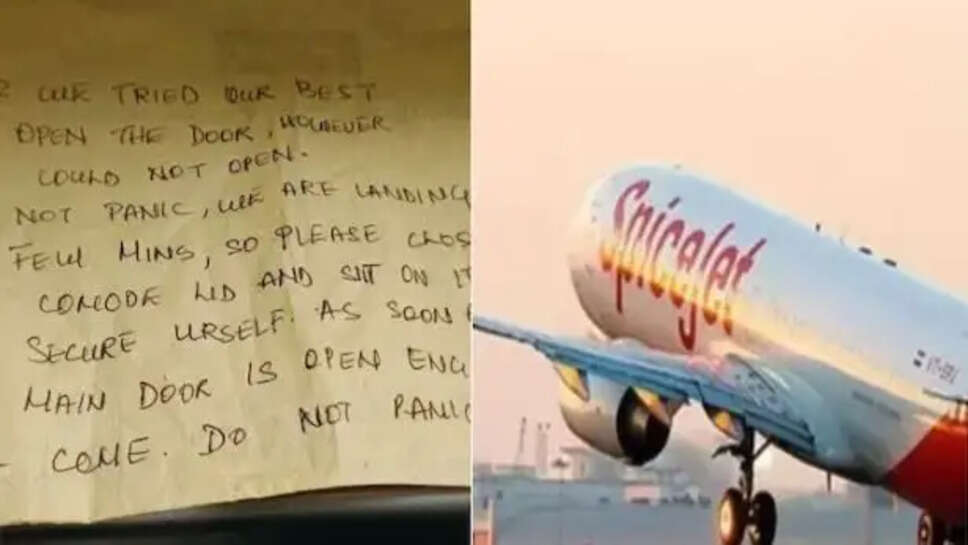 WE TRIED OUR BEST
OPEN THE DOOR, HOWEVER
COULD NOT OPEN.
NOT PANIC, WE ARE LANDING
FEW MINS, SO PLEASE CLOS
COMODE LID AND SIT ON IT
SECURE URSELF. AS SOON
MAIN DOOR IS OPEN ENG
COME. DO NOT PANIC
SpiceJet